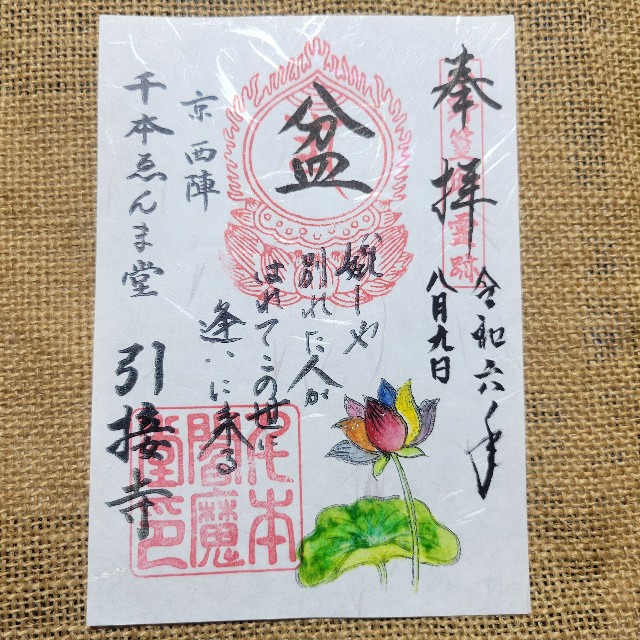 奉拝
令和六年
八月九日
盆
嬉しや
別れた人が
はれてこの世に
逢いに来る
京 西陣
千本ゑんま堂
引接寺
千本
閻魔
堂印